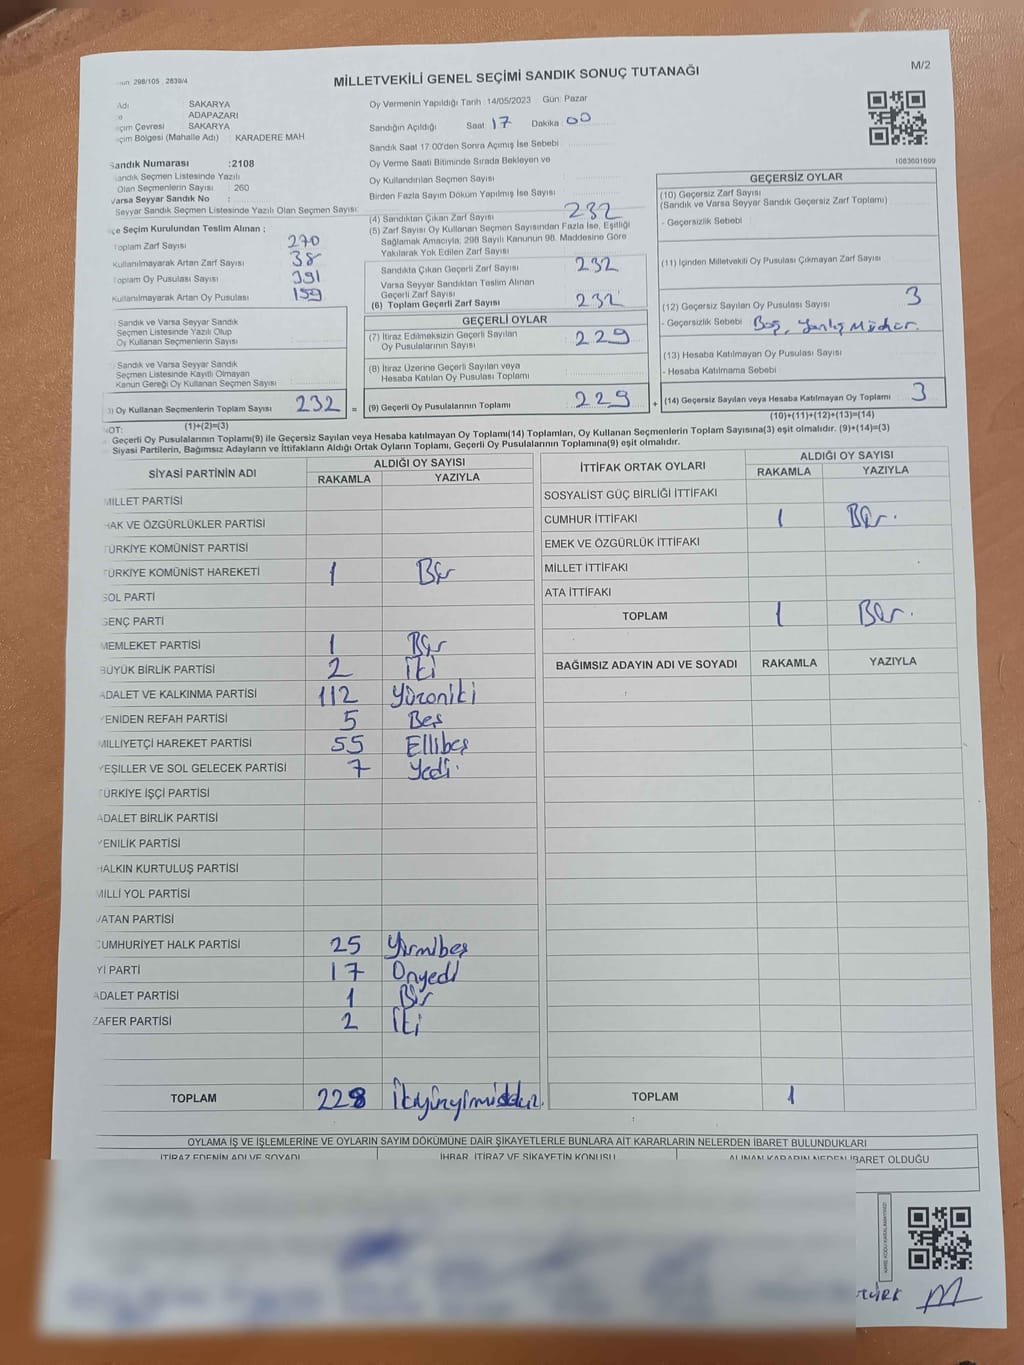 298/105 2839/4
MİLLETVEKİLİ GENEL SEÇİMİ SANDIK SONUÇ TUTANAĞI
M/2
Adı : SAKARYA
: ADAPAZARI
Seçim Çevresi : SAKARYA
Seçim Bölgesi (Mahalle Adı) : KARADERE MAH
Sandık Numarası :2108
Sandık Seçmen Listesinde Yazılı
Olan Seçmenlerin Sayısı : 260
Varsa Seyyar Sandık No :
Seyyar Sandık Seçmen Listesinde Yazılı Olan Seçmen Sayısı:
İlçe Seçim Kurulundan Teslim Alınan ;
Toplam Zarf Sayısı 270
Kullanılmayarak Artan Zarf Sayısı 38
Toplam Oy Pusulası Sayısı 391
Kullanılmayarak Artan Oy Pusulası 159
Sandık ve Varsa Seyyar Sandık
Seçmen Listesinde Yazılı Olup
Oy Kullanan Seçmenlerin Sayısı
Sandık ve Varsa Seyyar Sandık
Seçmen Listesinde Kayıtlı Olmayan
Kanun Gereği Oy Kullanan Seçmen Sayısı
3) Oy Kullanan Seçmenlerin Toplam Sayısı 232 =
(1)+(2)=(3)
Oy Vermenin Yapıldığı Tarih :14/05/2023 Gün: Pazar
Sandığın Açıldığı Saat 17 Dakika 00
Sandık Saat 17:00'den Sonra Açımış İse Sebebi
Oy Verme Saati Bitiminde Sırada Bekleyen ve
Oy Kullandırılan Seçmen Sayısı
Birden Fazla Sayım Döküm Yapılmış İse Sayısı
(4) Sandıktan Çıkan Zarf Sayısı 232
(5) Zarf Sayısı Oy Kullanan Seçmen Sayısından Fazla İse, Eşitliği
Sağlamak Amacıyla, 298 Sayılı Kanunun 98. Maddesine Göre
Yakılarak Yok Edilen Zarf Sayısı
Sandıkta Çıkan Geçerli Zarf Sayısı 232
Varsa Seyyar Sandıktan Teslim Alınan
Geçerli Zarf Sayısı
(6) Toplam Geçerli Zarf Sayısı 232
GEÇERLİ OYLAR
(7) İtiraz Edilmeksizin Geçerli Sayılan
Oy Pusulalarının Sayısı 229
(8) İtiraz Üzerine Geçerli Sayılan veya
Hesaba Katılan Oy Pusulası Toplamı
(9) Geçerli Oy Pusulalarının Toplamı 229 +
1083601699
GEÇERSİZ OYLAR
(10) Geçersiz Zarf Sayısı
(Sandık ve Varsa Seyyar Sandık Geçersiz Zarf Toplamı)
- Geçersizlik Sebebi :
(11) İçinden Milletvekili Oy Pusulası Çıkmayan Zarf Sayısı
(12) Geçersiz Sayılan Oy Pusulası Sayısı 3
- Geçersizlik Sebebi Boş, Yanlış Mühür.
(13) Hesaba Katılmayan Oy Pusulası Sayısı
- Hesaba Katılmama Sebebi
(14) Geçersiz Sayılan veya Hesaba Katılmayan Oy Toplamı 3
(10)+(11)+(12)+(13)=(14)
NOT:
Geçerli Oy Pusulalarının Toplamı(9) ile Geçersiz Sayılan veya Hesaba katılmayan Oy Toplamı(14) Toplamları, Oy Kullanan Seçmenlerin Toplam Sayısına(3) eşit olmalıdır. (9)+(14)=(3)
Siyasi Partilerin, Bağımsız Adayların ve İttifakların Aldığı Ortak Oyların Toplamı, Geçerli Oy Pusulalarının Toplamına(9) eşit olmalıdır.
SİYASİ PARTİNİN ADI ALDIĞI OY SAYISI
RAKAMLA YAZIYLA
MİLLET PARTİSİ
HAK VE ÖZGÜRLÜKLER PARTİSİ
TÜRKİYE KOMÜNİST PARTİSİ
TÜRKİYE KOMÜNİST HAREKETİ 1 Bir
SOL PARTİ
GENÇ PARTİ
MEMLEKET PARTİSİ 1 Bir
BÜYÜK BİRLİK PARTİSİ 2 İki
ADALET VE KALKINMA PARTİSİ 112 Yüzoniki
YENİDEN REFAH PARTİSİ 5 Beş
MİLLİYETÇİ HAREKET PARTİSİ 55 Ellibeş
YEŞİLLER VE SOL GELECEK PARTİSİ 7 Yedi.
TÜRKİYE İŞÇİ PARTİSİ
ADALET BİRLİK PARTİSİ
YENİLİK PARTİSİ
HALKIN KURTULUŞ PARTİSİ
MİLLİ YOL PARTİSİ
VATAN PARTİSİ
CUMHURİYET HALK PARTİSİ 25 Yirmibeş
İYİ PARTİ 17 Onyedi
ADALET PARTİSİ 1 Bir
ZAFER PARTİSİ 2 İki
TOPLAM 228
İTTİFAK ORTAK OYLARI ALDIĞI OY SAYISI
RAKAMLA YAZIYLA
SOSYALİST GÜÇ BİRLİĞİ İTTİFAKI
CUMHUR İTTİFAKI 1 Bir.
EMEK VE ÖZGÜRLÜK İTTİFAKI
MİLLET İTTİFAKI
ATA İTTİFAKI
TOPLAM 1 Bir.
BAĞIMSIZ ADAYIN ADI VE SOYADI RAKAMLA YAZIYLA
TOPLAM 1
OYLAMA İŞ VE İŞLEMLERİNE VE OYLARIN SAYIM DÖKÜMÜNE DAİR ŞİKAYETLERLE BUNLARA AİT KARARLARIN NELERDEN İBARET BULUNDUKLARI
İTİRAZ EDENİN ADI VE SOYADI İHBAR, İTİRAZ VE ŞİKAYETİN KONUSU ALINAN KARARIN NEDEN İBARET OLDUĞU
KARE KODU KARALAMAYINIZ!